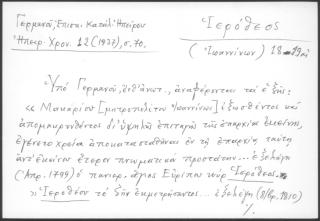 Γερμανοῦ, Ἐπισκ. Καταλ. Ἠπείρου
Ἠπειρ. Χρον. 12 (1937), σ. 70.
Ἱερόθεος
(Ἰωαννίνων) 18
Ὑπὸ Γερμανοῦ, ἀναφέρονται τὰ ἑξῆς:
« Μακαρίου [μητροπολίτου Ἰωαννίνων] ἐξωσθέντος καὶ
ἀπομακρυνθέντος δι' ὑψηλῆς ἐπιταγῆς τῆς ἐπαρχίας ἐκείνης,
ἐγένετο χρεία ἀποκατασταθῆναι ἐν τῇ ἐπαρχίᾳ ταύτῃ
ἀντ' ἐκείνου ἕτερον πνευματικὸν προστάτην...
(Ἀπρ. 1799) ὁ πανιερ. ἅγιος Εὐρίπου κὺρ Ἱερόθεος.»
» Ἱεροθέου τὸ ζῆν ἐκμετρήσαντος... (1810)
%